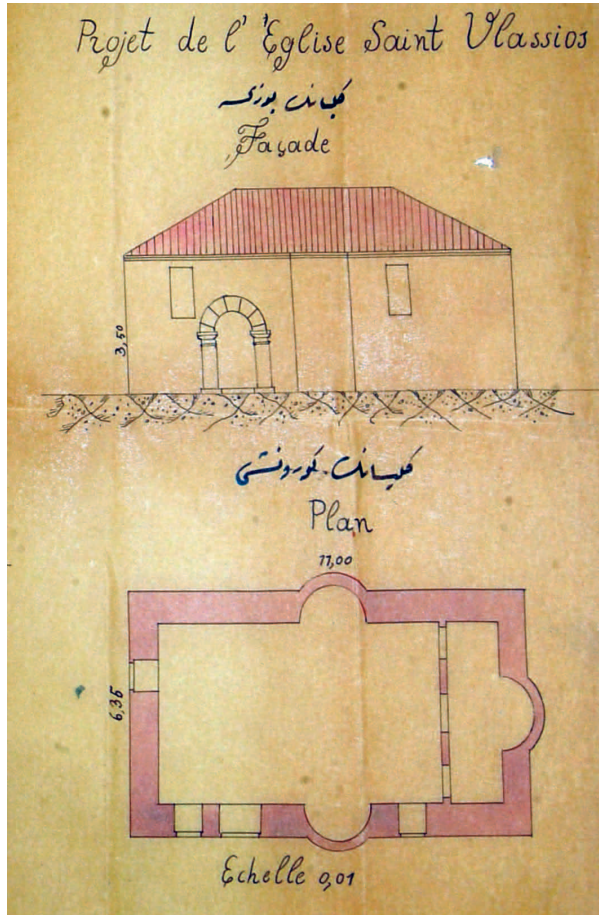 Projet de l' Eglise Saint Vlassios
كلیسانك
Façade
3,50
كلیسانك كورونشی
Plan
11,00
6,35
Echelle 0,01